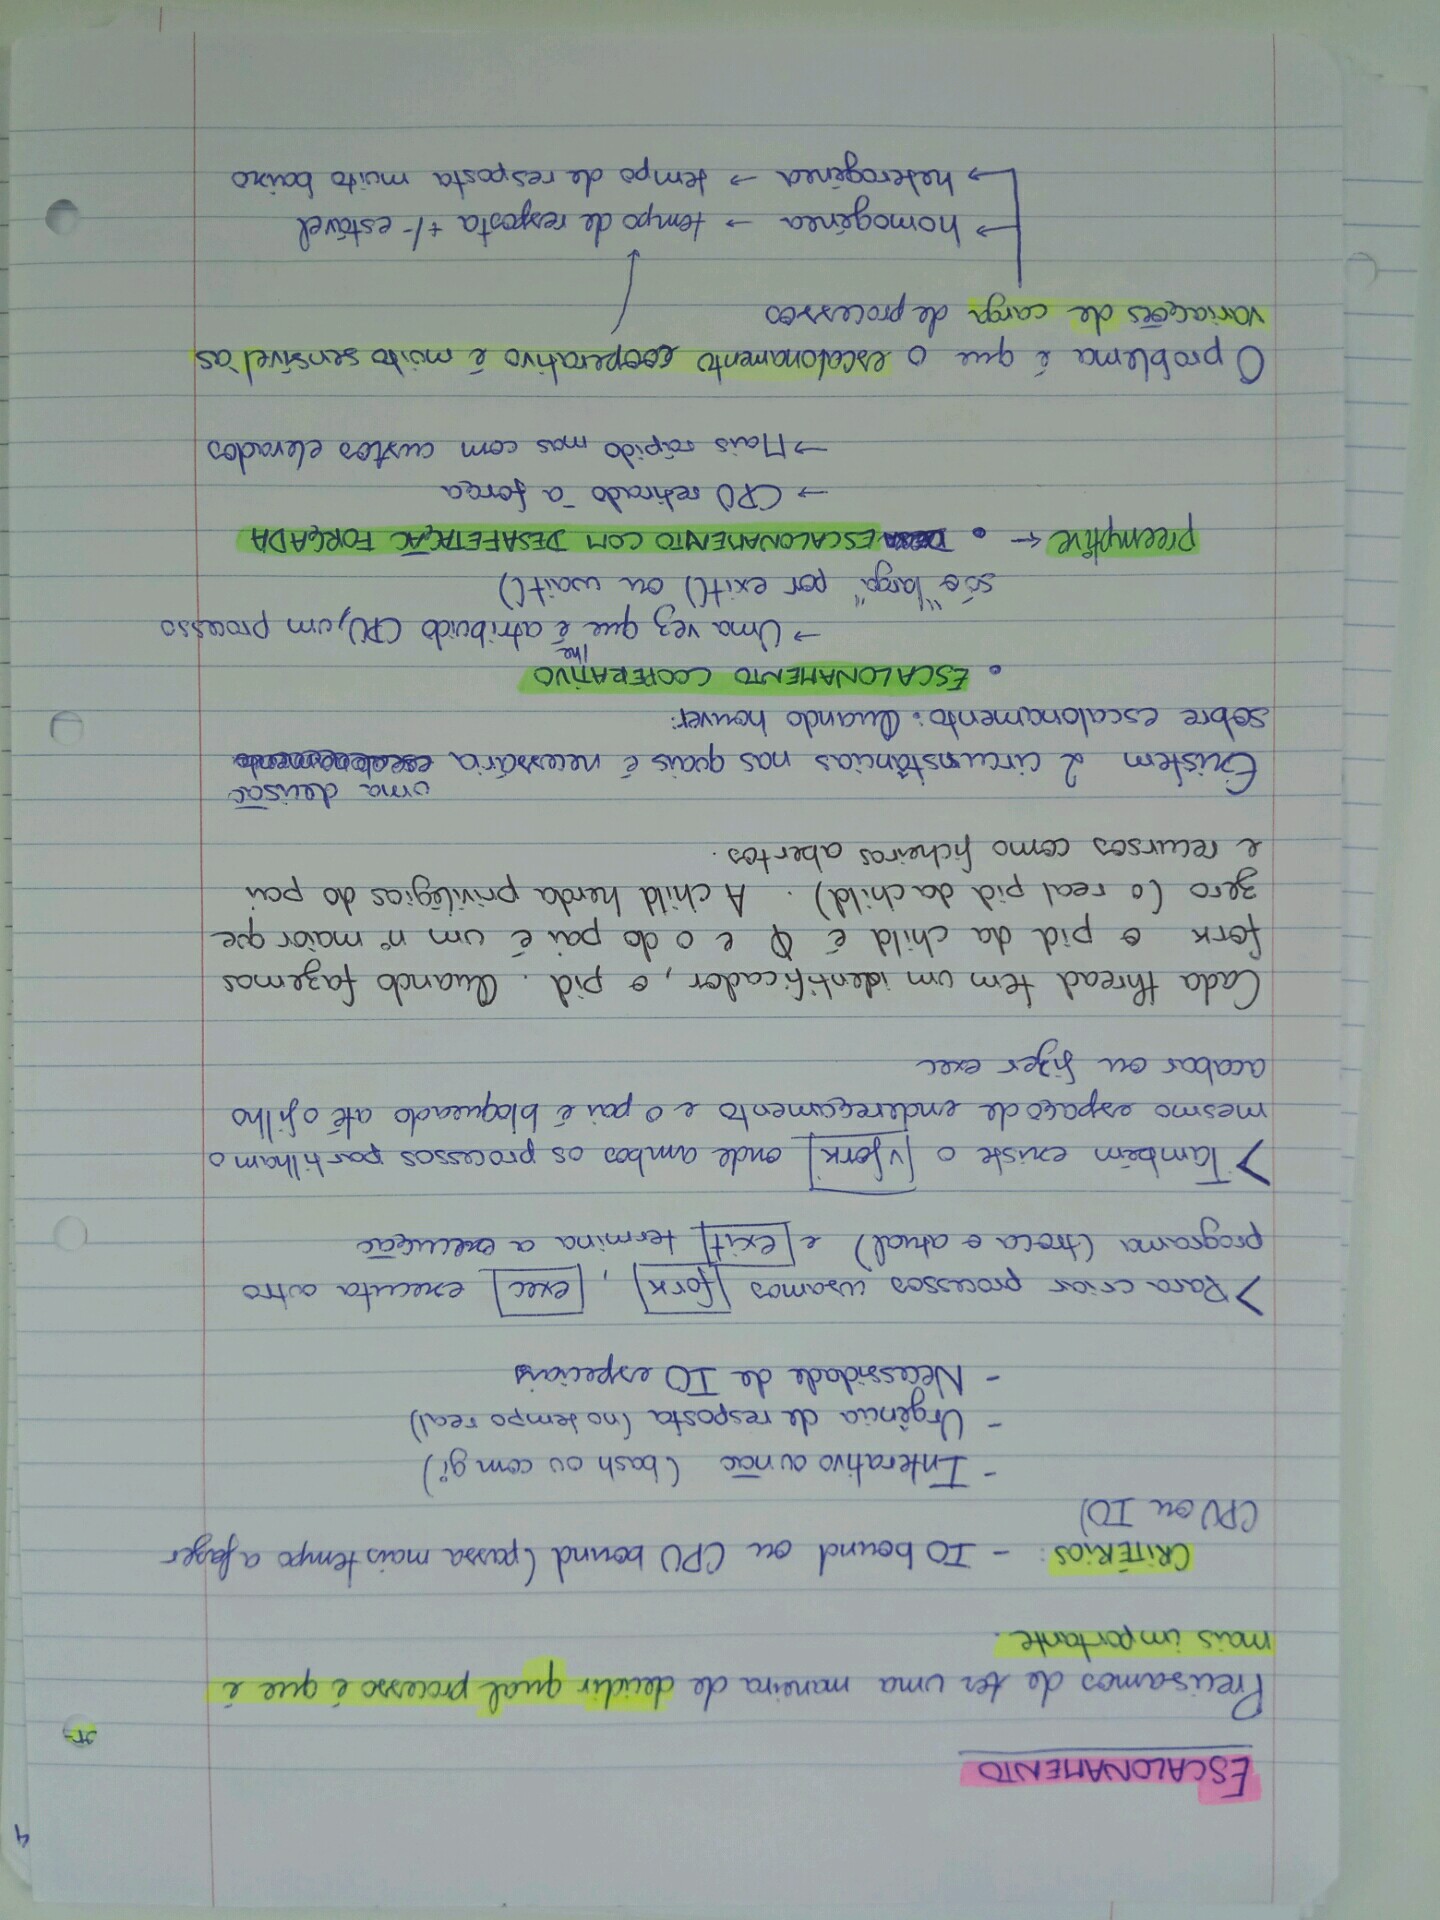 4
ESCALONAMENTO
Precisamos de ter uma maneira de decidir qual processo é que é
mais importante.
CRITÉRIOS: - IO bound ou CPU bound (passa mais tempo a fazer
CPU ou IO)
- Interativo ou não (bash ou com gi)
- Urgência de resposta (no tempo real)
- Necessidade de IO especiais
> Para criar processos usamos fork, exec executa outro
programa (troca o atual) e exit termina a execução
> Também existe o vfork onde ambos os processos partilham o
mesmo espaço de endereçamento e o pai é bloqueado até o filho
acabar ou fizer exec
Cada thread tem um identificador, o pid. Quando fazemos
fork o pid da child é 0 e o do pai é um nº maior que
zero (o real pid da child). A child herda privilégios do pai
e recursos como ficheiros abertos.
Existem 2 circunstâncias nas quais é necessária uma decisão
sobre escalonamento: Quando houver:
• ESCALONAMENTO COOPERATIVO
→ Uma vez que lhe é atribuido CPU, um processo
só o "larga" por exit() ou wait()
preemptive ← • ESCALONAMENTO COM DESAFETAÇÃO FORÇADA
→ CPU retirado à força
→ Mais rápido mas com custos elevados
O problema é que o escalonamento cooperativo é muito sensível às
variações de carga de processos
→ homogénea → tempo de resposta +/- estável
→ heterogénea → tempo de resposta muito baixo